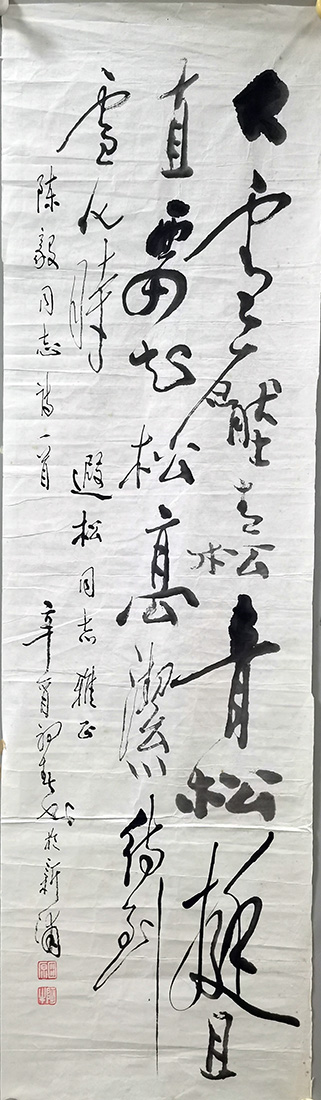 大雪壓青松青松挺且
直要知松高潔待到
雪化時
遐松同志雅正
陈毅同志诗一首
辛酉初春书於新浦